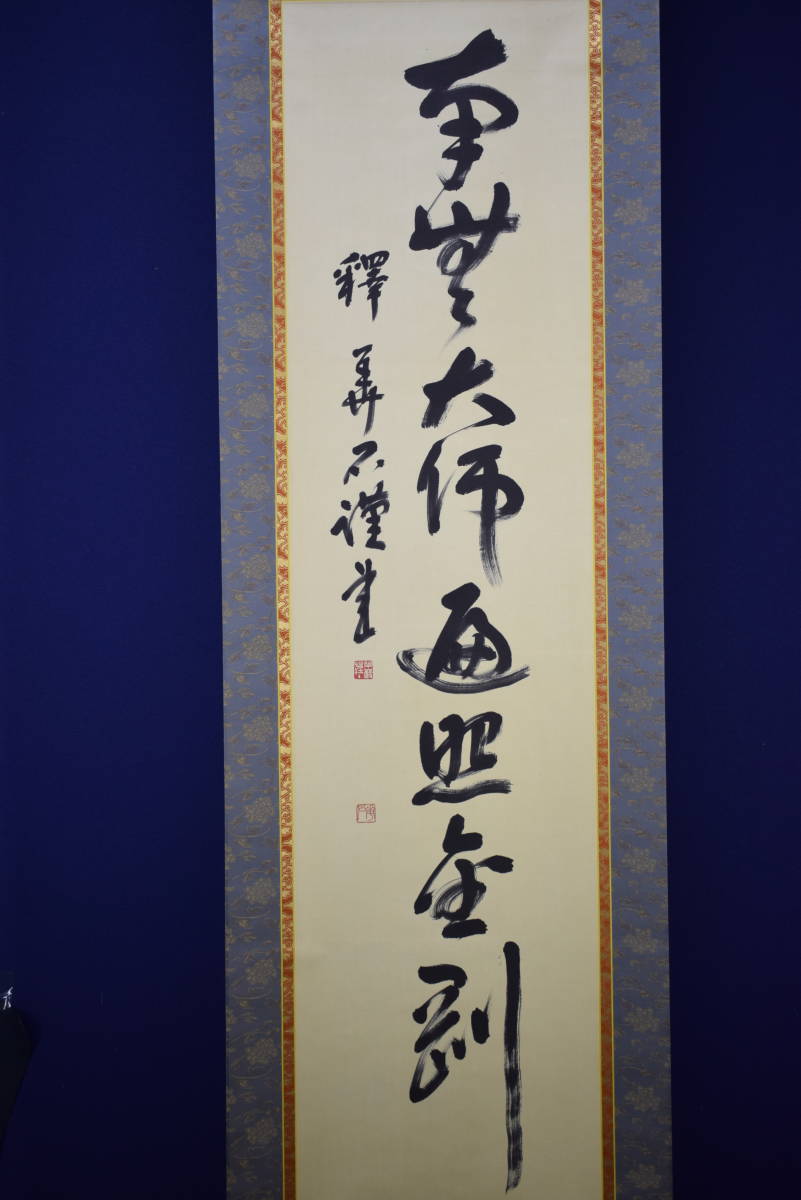 南無大師遍照金剛
釋 華石謹書